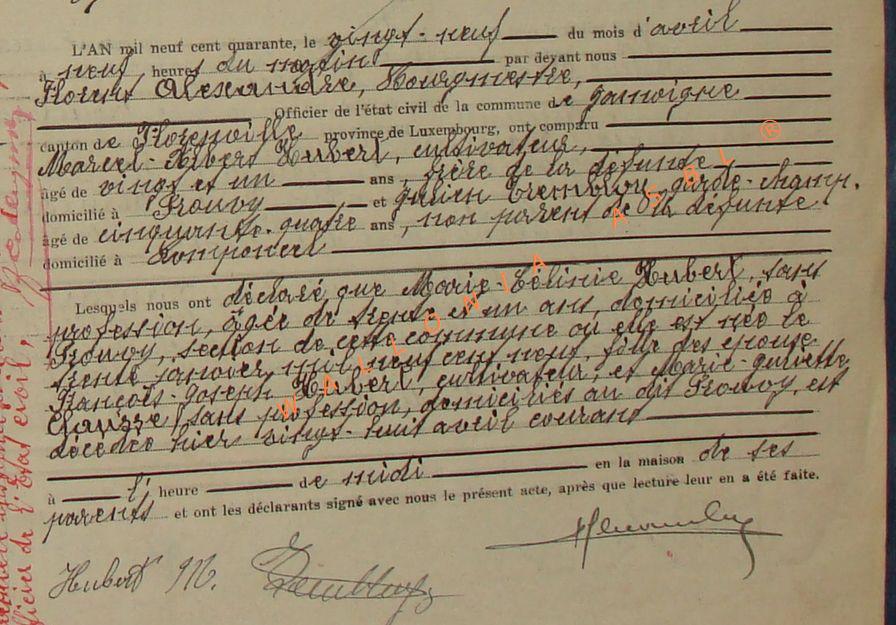 L'AN mil neuf cent quarante, le vingt-neuf du mois d'avril
à neuf heures du matin par devant nous
Florent Alexandre, Bourgmestre,
Officier de l'état civil de la commune de Jamoigne
canton de Florenville province de Luxembourg, ont comparu
Marcel-Albert Hubert, cultivateur,
âgé de vingt et un ans, frère de la défunte
domicilié à Prouvy et Julien Trembloy, garde-champ.
âgé de cinquante-quatre ans, non parent de la défunte
domicilié à
Lesquels nous ont déclaré que Marie-Célinie Hubert, sans
profession, âgée de trente et un ans, domiciliée à
Prouvy, section de cette commune où elle est née le
trente janvier mil neuf cent neuf, fille des épouse
François-Joseph Hubert, cultivateur, et Marie-Juliette
sans profession, domiciliés au dit Prouvy, est
décédée hier vingt-huit avril courant
à l' heure de midi en la maison de ses
parents et ont les déclarants signé avec nous le présent acte, après que lecture leur en a été faite.
Hubert M.
WALLONIA ASBL ®